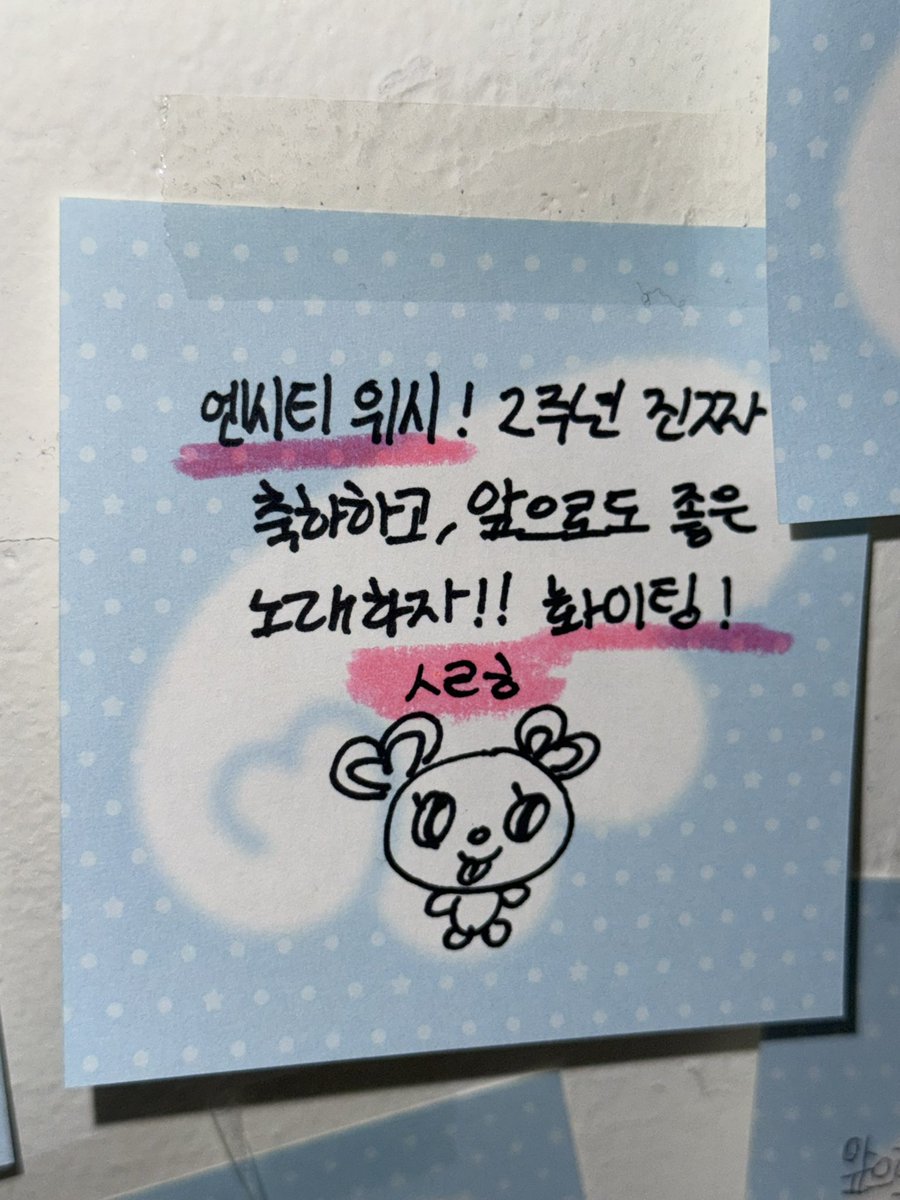 엔씨티 위시! 2주년 진짜
축하하고, 앞으로도 좋은
노래하자!! 화이팅!
ㅅㄹㅎ